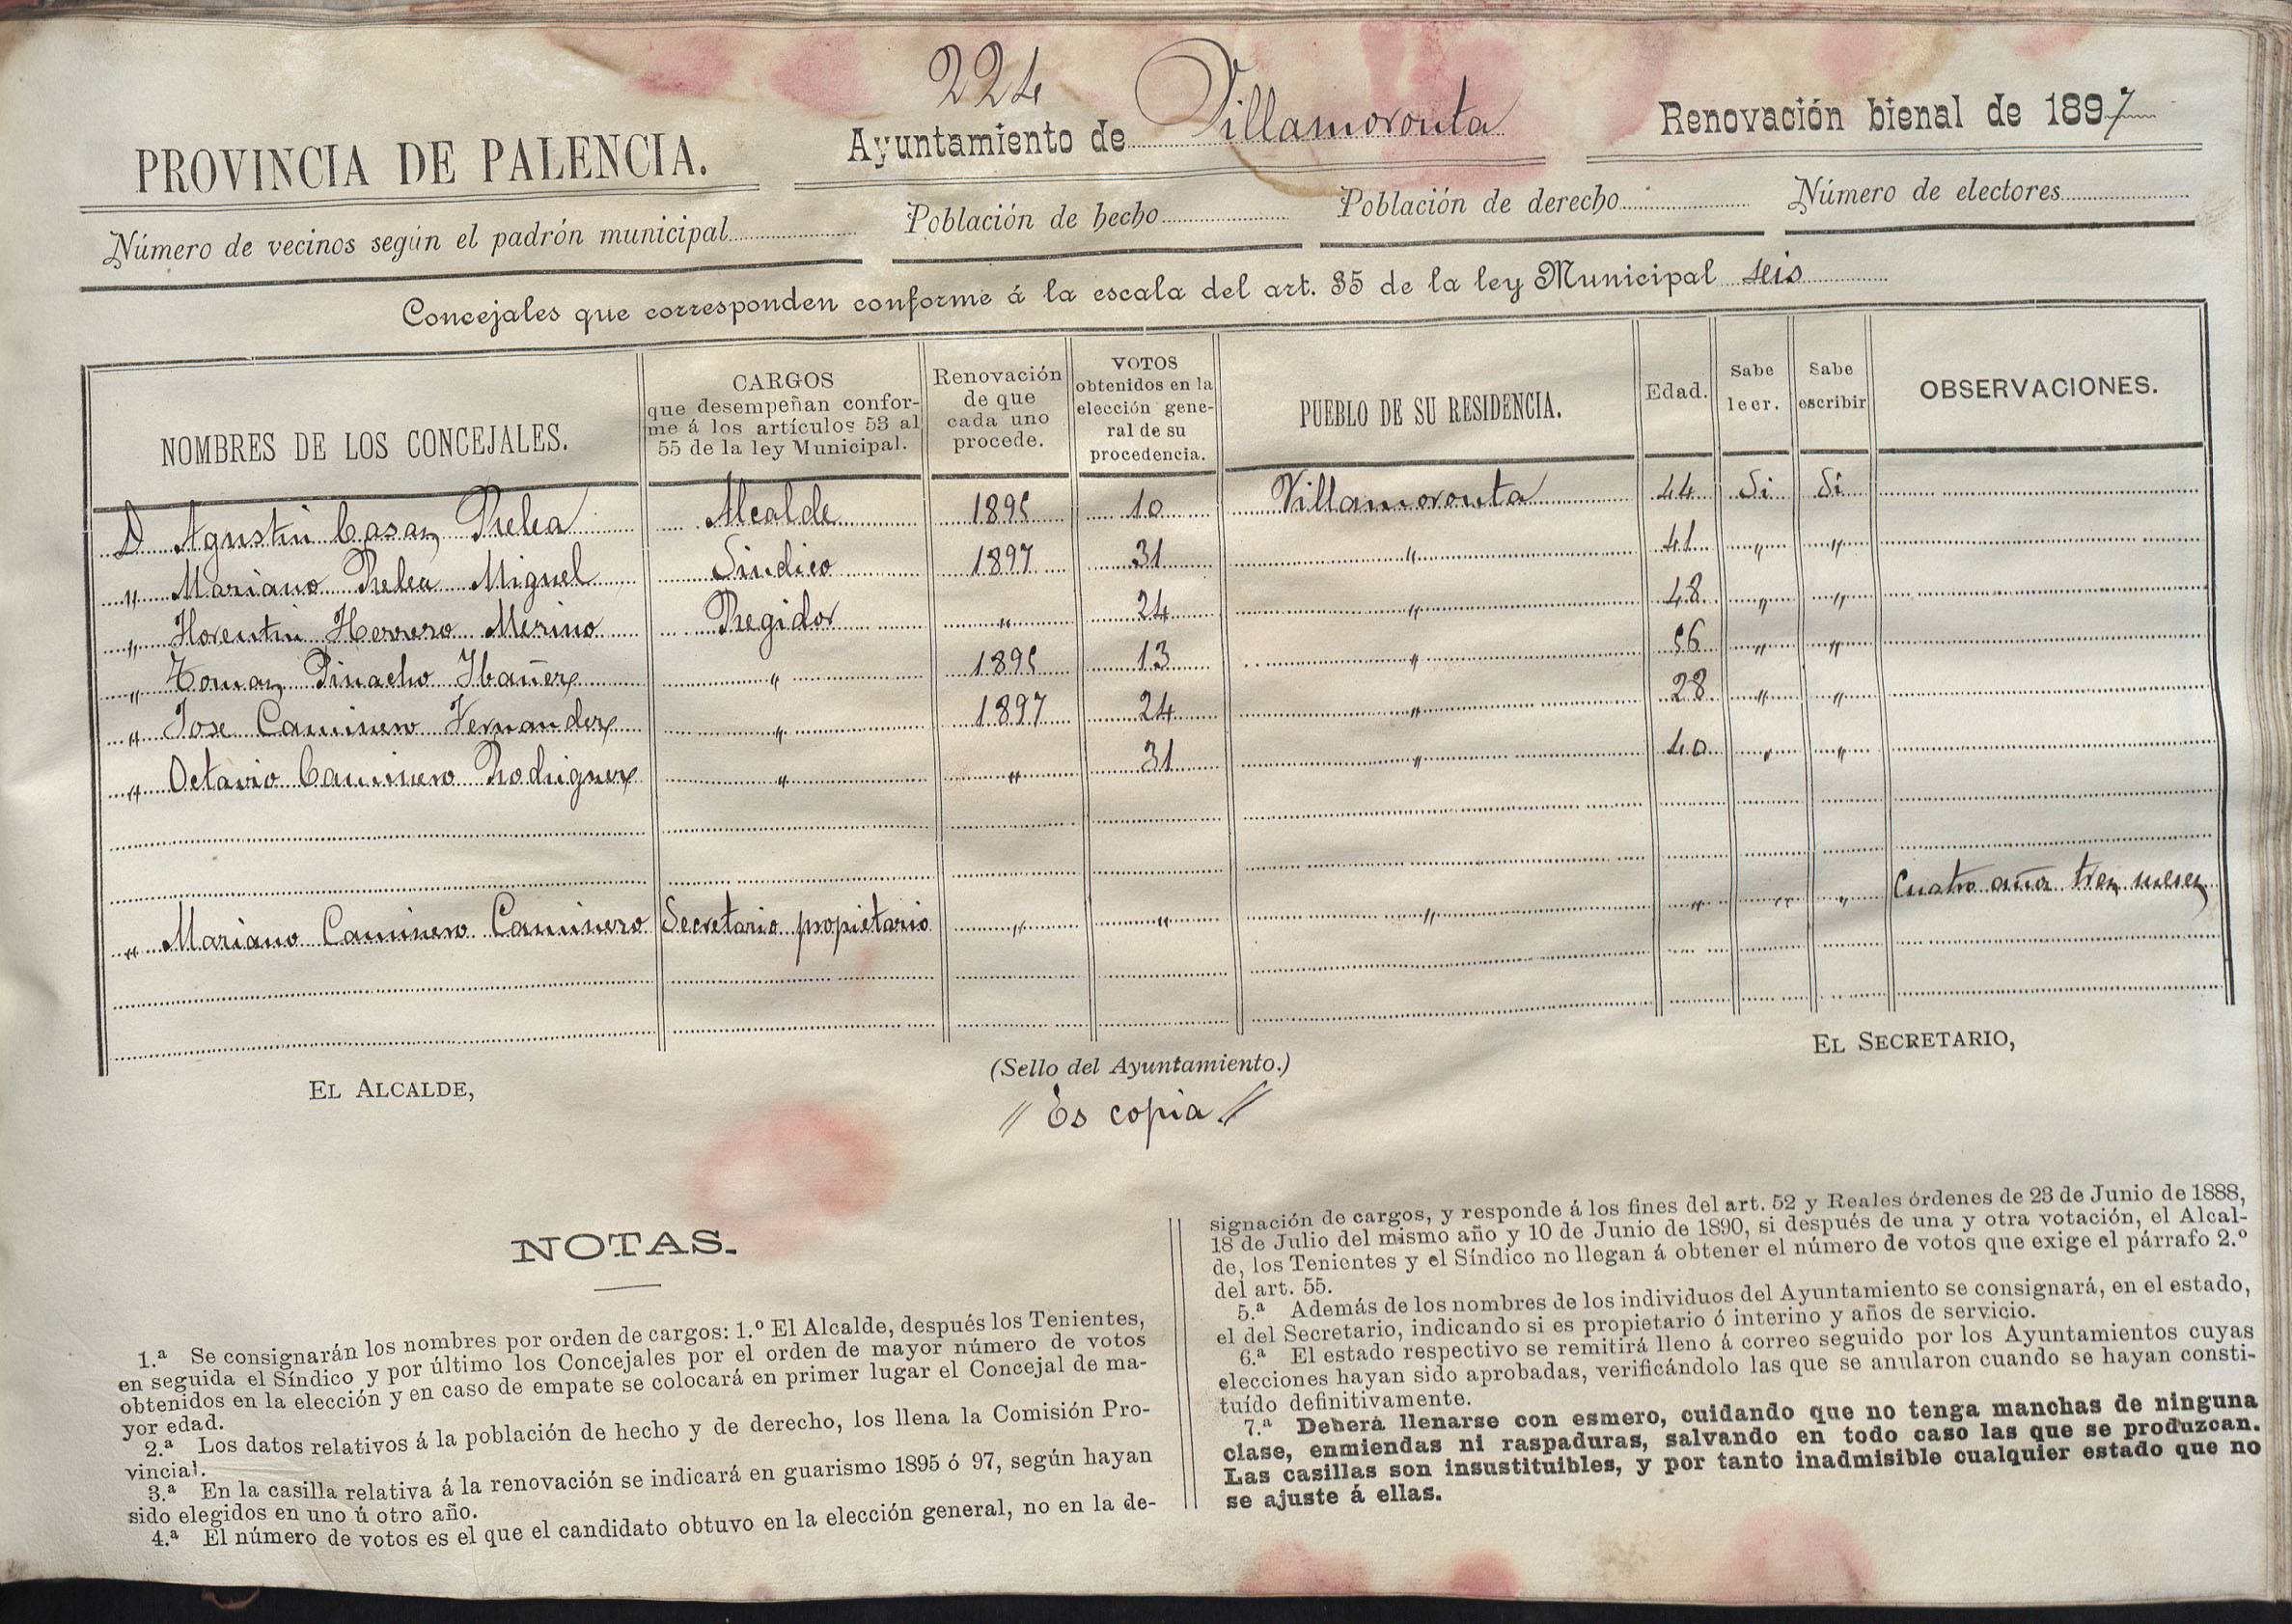 224
PROVINCIA DE PALENCIA.
Ayuntamiento de Villamoronta
Renovación bienal de 1897
Número de vecinos según el padrón municipal
Población de hecho
Población de derecho
Número de electores
Concejales que corresponden conforme á la escala del art. 35 de la ley Municipal seis
NOMBRES DE LOS CONCEJALES.
CARGOS
que desempeñan confor-
me á los artículos 53 al
55 de la ley Municipal.
Renovación
de que
cada uno
procede.
VOTOS
obtenidos en la
elección gene-
ral de su
procedencia.
PUEBLO DE SU RESIDENCIA.
Edad.
Sabe
leer.
Sabe
escribir
OBSERVACIONES.
D Agustin Casas Relea Alcalde 1895 10 Villamoronta 44 Si Si
" Mariano Relea Miguel Sindico 1897 31 " 41 " "
" Florentin Herrero Merino Regidor " 24 " 48 " "
" Tomas Pinacho Ibañez " 1895 13 " 56 " "
" Jose Caminero Fernandez " 1897 24 " 28 " "
" Octavio Caminero Rodriguez " " 31 " 40 " "
" Mariano Caminero Caminero Secretario propietario " " " " " " Cuatro años tres meses
EL ALCALDE,
(Sello del Ayuntamiento.)
EL SECRETARIO,
// Es copia //
NOTAS.
1.ª Se consignarán los nombres por orden de cargos: 1.º El Alcalde, después los Tenientes,
en seguida el Síndico y por último los Concejales por el orden de mayor número de votos
obtenidos en la elección y en caso de empate se colocará en primer lugar el Concejal de ma-
yor edad.
2.ª Los datos relativos á la población de hecho y de derecho, los llena la Comisión Pro-
vincial.
3.ª En la casilla relativa á la renovación se indicará en guarismo 1895 ó 97, según hayan
sido elegidos en uno ú otro año.
4.ª El número de votos es el que el candidato obtuvo en la elección general, no en la de-
signación de cargos, y responde á los fines del art. 52 y Reales órdenes de 23 de Junio de 1888,
18 de Julio del mismo año y 10 de Junio de 1890, si después de una y otra votación, el Alcal-
de, los Tenientes y el Síndico no llegan á obtener el número de votos que exige el párrafo 2.º
del art. 55.
5.ª Además de los nombres de los individuos del Ayuntamiento se consignará, en el estado,
el del Secretario, indicando si es propietario ó interino y años de servicio.
6.ª El estado respectivo se remitirá lleno á correo seguido por los Ayuntamientos cuyas
elecciones hayan sido aprobadas, verificándolo las que se anularon cuando se hayan consti-
tuído definitivamente.
7.ª Deberá llenarse con esmero, cuidando que no tenga manchas de ninguna
clase, enmiendas ni raspaduras, salvando en todo caso las que se produzcan.
Las casillas son insustituibles, y por tanto inadmisible cualquier estado que no
se ajuste á ellas.